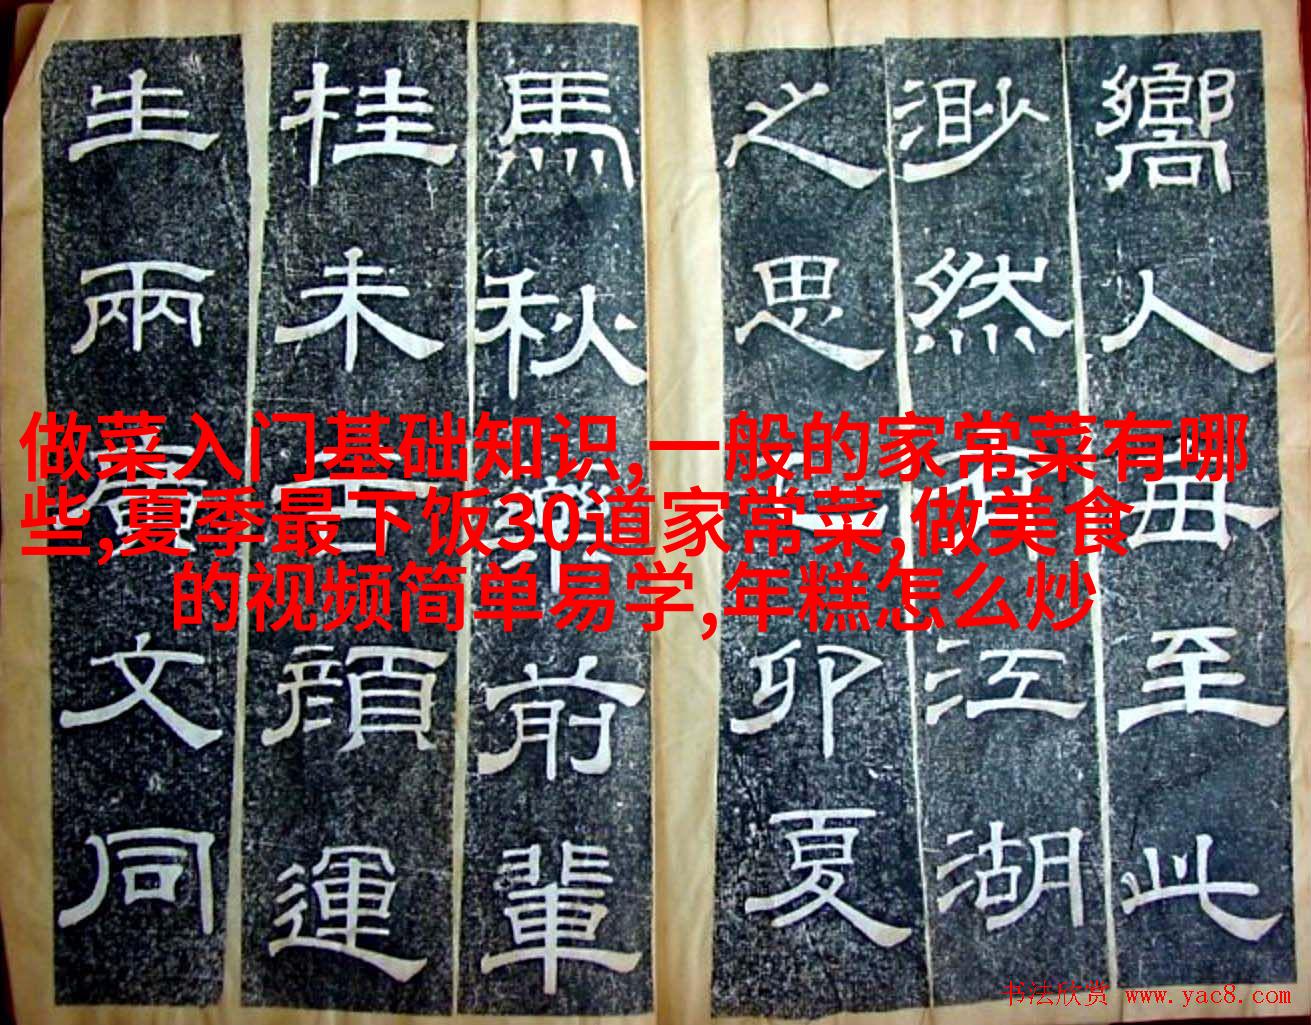 嚮人再至此
渺然有江湖
之思卯夏
馬秋藥前輩
桂未谷顔運
生兩廣文同
做菜入门基础知识,一般的家常菜有哪
些,夏季最下饭30道家常菜,做美食
的视频简单易学,年糕怎么炒
书法欣赏 www.yac8.com